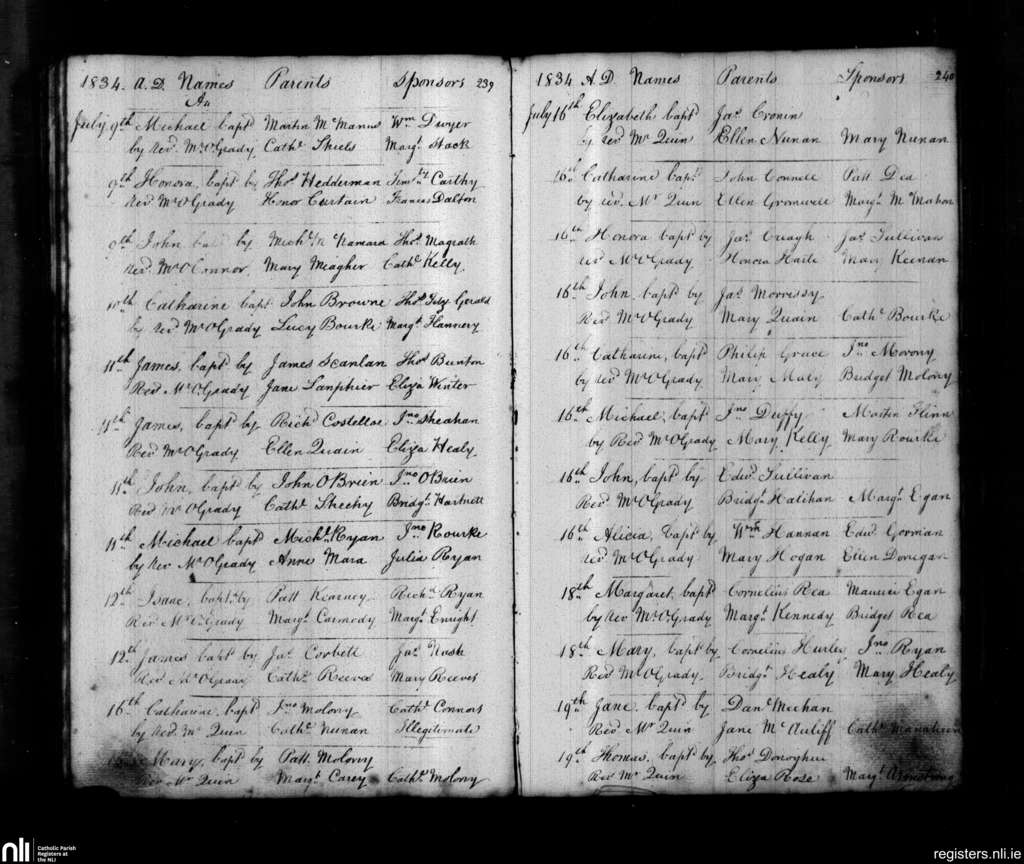 1834. A.D. Names Parents Sponsors 239
July 9th Michael bapd Martin McManus Wm Dwyer
by Revd. Mr O'Grady Cathe Shiels Margt Stack
9th Honora, bapd by Thos Hedderman Carthy
Revd Mr O'Grady Honor Curtain Frances Dalton
9th John bapd by Michl McNamara Thos Magrath
Revd. Mr O'Connor, Mary Meagher Cathe Kelly
10th Catharine bapd John Browne Thos Fitz Gerald
by Revd Mr O'Grady Lucy Bourke Margt Flannery
11th James, bapd by James Scanlan Thos Bunton
Revd Mr O'Grady Jane Lanphier Eliza Winter
11th James, bapd by Richd Costelloe Jno Sheahan
Revd Mr O'Grady Ellen Quain Eliza Healy
11th John, bapd by John O'Brien Jno O'Brien
Revd Mr O'Grady Cathe Sheehy Bridgt Hartnett
11th Michael bapd Michl Ryan Jno Rourke
by Rev Mr O'Grady Anne Mara Julia Ryan
12th Isaac, bapd by Patt Kearney Richd Ryan
Rev Mr O'Grady Margt Carmody Margt Enright
12th James bapd by Jas Corbett Jas Nash
Rev Mr O'Grady Cathe Reeves Mary Reeves
16th Catharine, bapd Jno Molony Cathe Connors
by Revd. Mr Quin Cathe Nunan Illegitimate
Mary, bapd by Patt. Molony
Rev Mr Quin Margt Carey Cathe Molony
1834 A.D Names Parents Sponsors 240
July 16th Elizabeth bapd Jas Cronin
by Revd Mr Quin Ellen Nunan Mary Nunan
16th Catharine bapd John Connell Patt Dea
by revd. Mr Quin Ellen Gromwell Margt McMahon
16th Honora bapd by Jas Creagh Jas Sullivan
revd Mr O'Grady Honora Haile Mary Keenan
16th John, bapd by Jas Morrissy
Revd Mr O'Grady Mary Quain Cathe Bourke
16th Catharine, bapd Philip Grace Jno Morony
by revd Mr O'Grady Mary Maly Bridget Molony
16th Michael, bapd Jno Duffy Martin Flinn
by Revd Mr O'Grady Mary Kelly Mary Rourke
16th John, bapd by Edwd Sullivan
Revd Mr O'Grady Bridgt Halihan Margt Egan
16th Alicia, bapd by Wm Hannan Edwd Gorman
revd Mr O'Grady Mary Hogan Ellen Donegan
18th Margaret, bapd Cornelius Rea Maurice Egan
by Rev Mr O'Grady Margt Kennedy Bridget Rea
18th Mary, bapd by Cornelius Hurley Jno Ryan
Revd Mr O'Grady Bridgt Healy Mary Healy
19th Jane, bapd by Danl Meehan
Revd Mr Quin Jane McAuliff Cathe
19th Thomas, bapd by Thos Donoghue
Rev Mr Quin Eliza Rose Margt Armstrong
nli Catholic Parish
Registers at
the NLI
registers.nli.ie